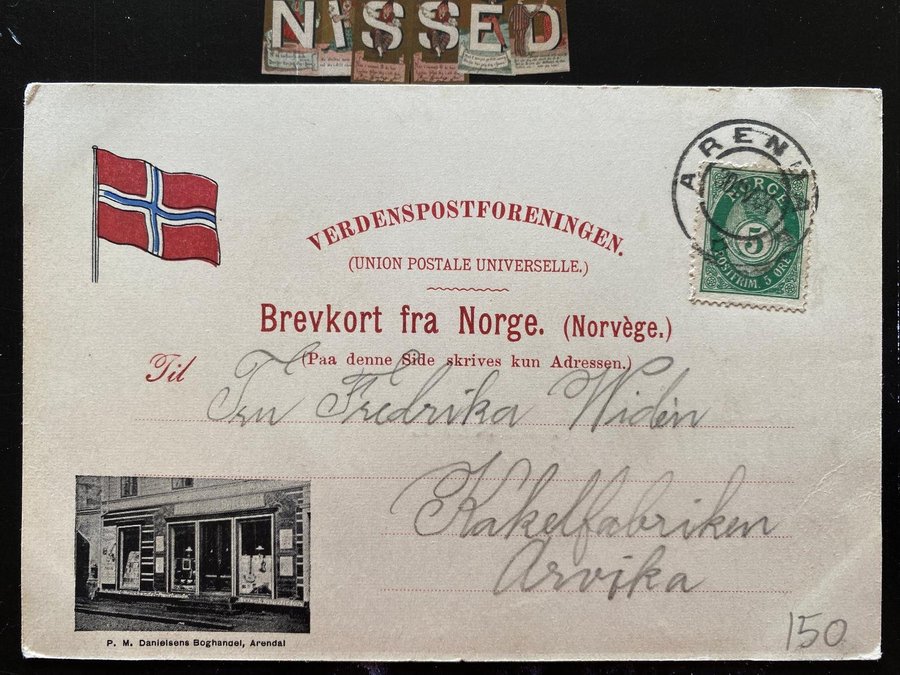 NISSED
VERDENSPOSTFORENINGEN.
(UNION POSTALE UNIVERSELLE.)
Brevkort fra Norge. (Norvège.)
(Paa denne Side skrives kun Adressen.)
Til
Fru Fredrika Widén
Kakelfabriken
Arvika
ARENDAL
NORGE
5
POSTFRIM. 5 ØRE
P. M. Danielsens Boghandel, Arendal
150